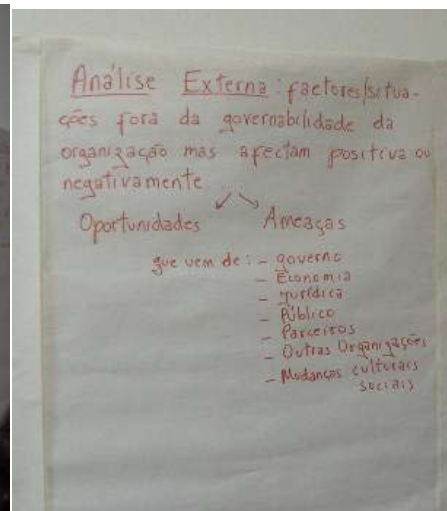 Análise Externa: factores/situa-
ções fora da governabilidade da
organização mas afectam positiva ou
negativamente
Oportunidades Ameaças
que vem de: - governo
- Economia
- jurídica
- Público
- Parceiros
- Outras Organizações
- Mudanças culturais
sociais